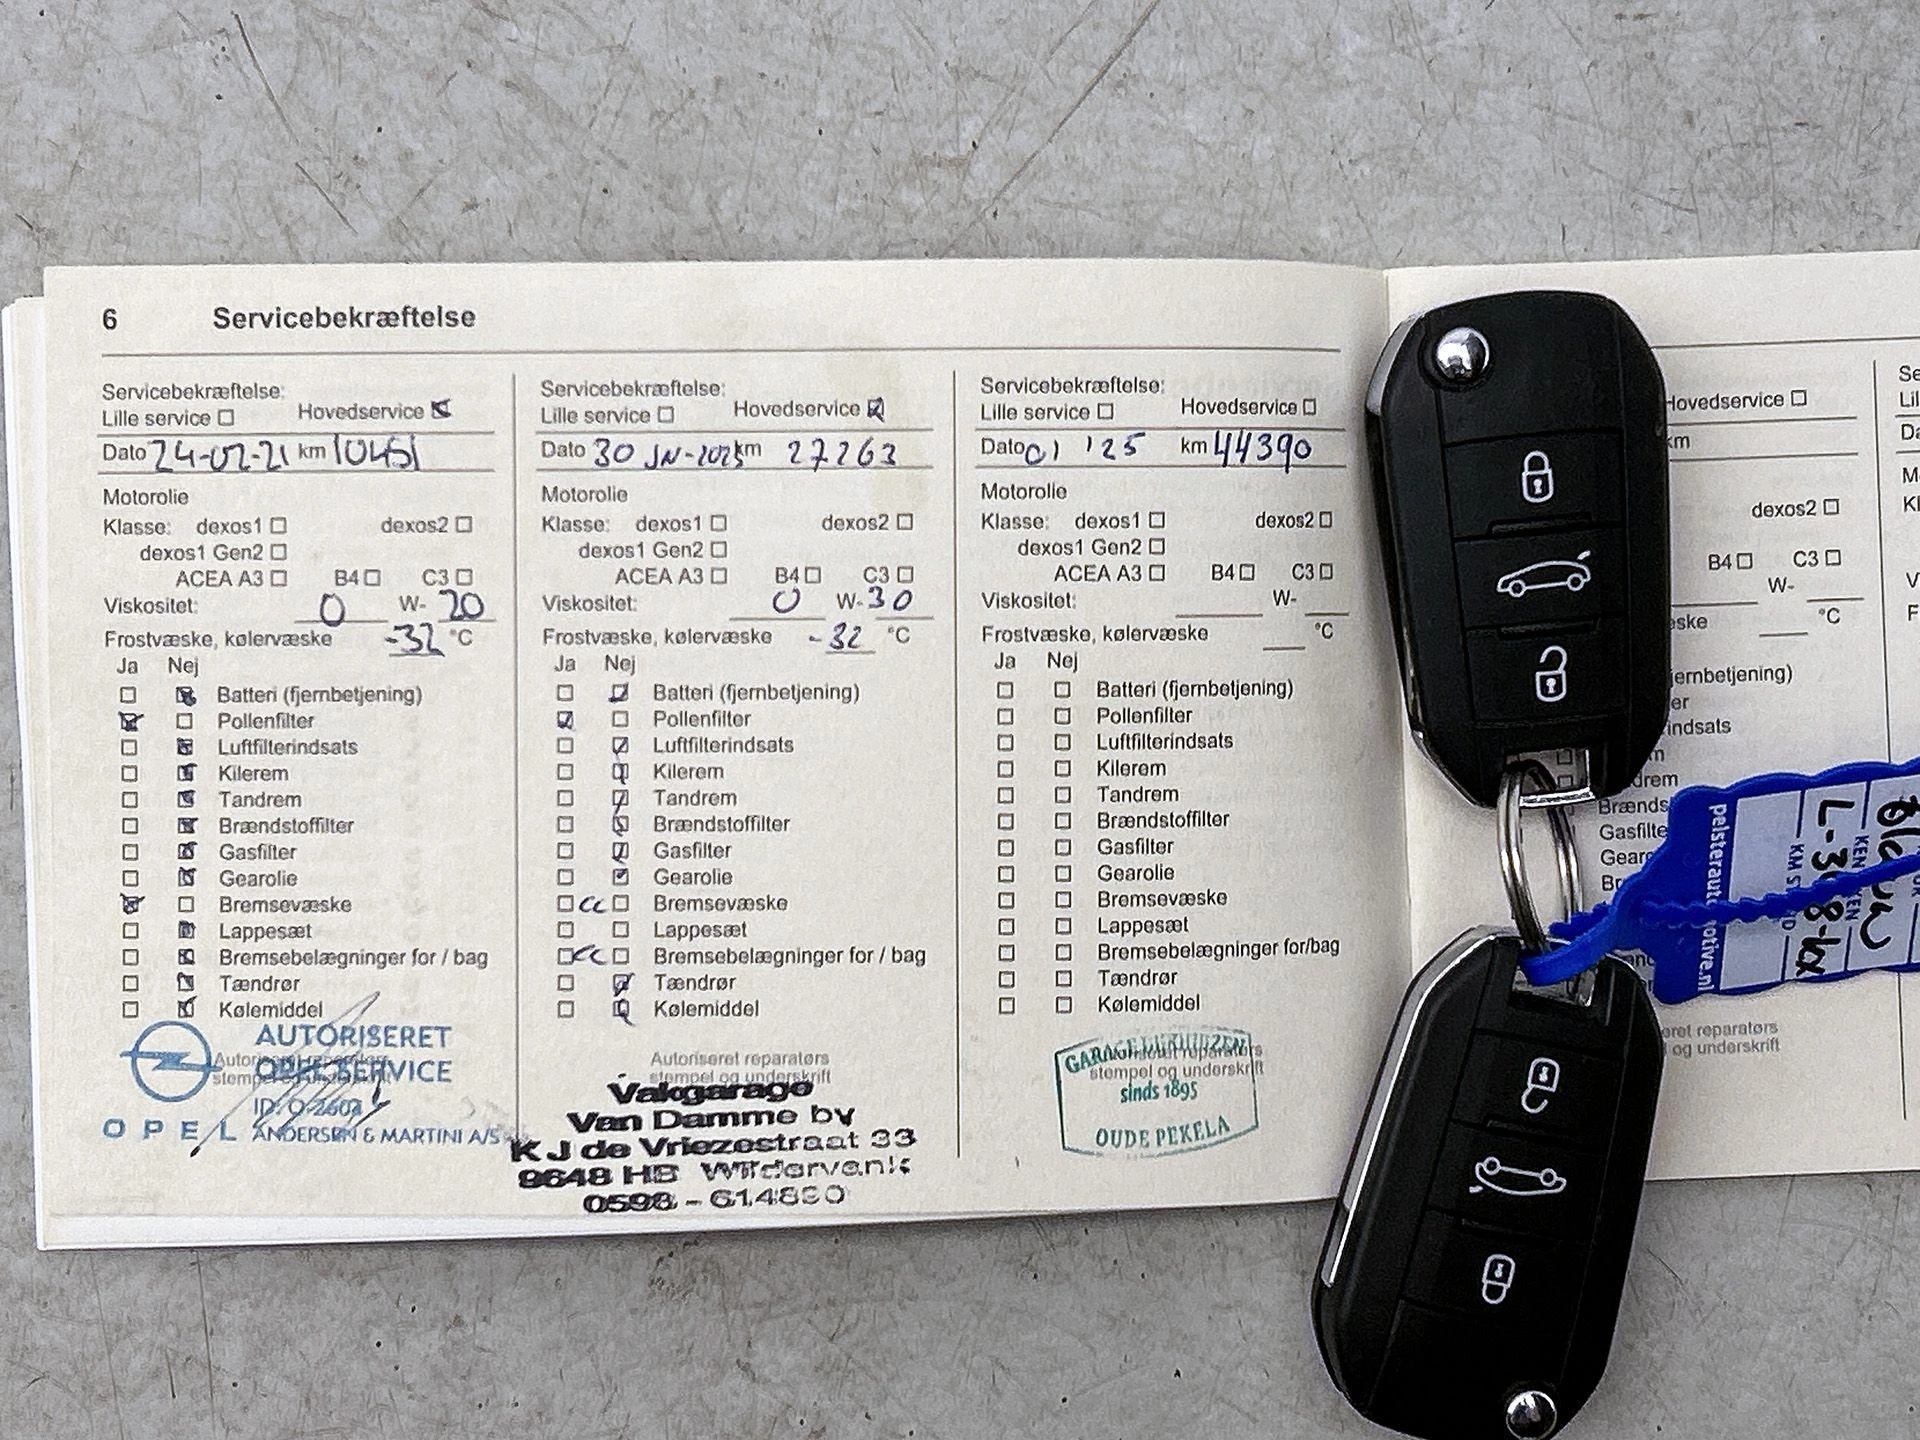 6 Servicebekræftelse
Servicebekræftelse:
Lille service Hovedservice
Dato 24-02-21 km 10451
Motorolie
Klasse: dexos1 dexos2
dexos1 Gen2
ACEA A3 B4 C3
Viskositet: 0 W- 20
Frostvæske, kølervæske -32 °C
Ja Nej
Batteri (fjernbetjening)
Pollenfilter
Luftfilterindsats
Kilerem
Tandrem
Brændstoffilter
Gasfilter
Gearolie
Bremsevæske
Lappesæt
Bremsebelægninger for / bag
Tændrør
Kølemiddel
Autoriseret reparatørs
stempel og underskrift
AUTORISERET
OPEL SERVICE
ID: O-2603
OPEL ANDERSEN & MARTINI A/S
Servicebekræftelse:
Lille service Hovedservice
Dato 30 JN-2023 km 27263
Motorolie
Klasse: dexos1 dexos2
dexos1 Gen2
ACEA A3 B4 C3
Viskositet: 0 W- 30
Frostvæske, kølervæske -32 °C
Ja Nej
Batteri (fjernbetjening)
Pollenfilter
Luftfilterindsats
Kilerem
Tandrem
Brændstoffilter
Gasfilter
Gearolie
Bremsevæske
Lappesæt
Bremsebelægninger for / bag
Tændrør
Kølemiddel
Autoriseret reparatørs
stempel og underskrift
Vakgarage
Van Damme bv
K J de Vriezestraat 33
9648 HB Wildervank
0598 - 614890
Servicebekræftelse:
Lille service Hovedservice
Dato 01 '25 km 44390
Motorolie
Klasse: dexos1 dexos2
dexos1 Gen2
ACEA A3 B4 C3
Viskositet: W-
Frostvæske, kølervæske °C
Ja Nej
Batteri (fjernbetjening)
Pollenfilter
Luftfilterindsats
Kilerem
Tandrem
Brændstoffilter
Gasfilter
Gearolie
Bremsevæske
Lappesæt
Bremsebelægninger for/bag
Tændrør
Kølemiddel
Autoriseret reparatørs
stempel og underskrift
GARAGE
sinds 1895
OUDE PEKELA
Hovedservice
km
dexos2
B4 C3
W-
°C
Gasfilte
reparatørs
og underskrift